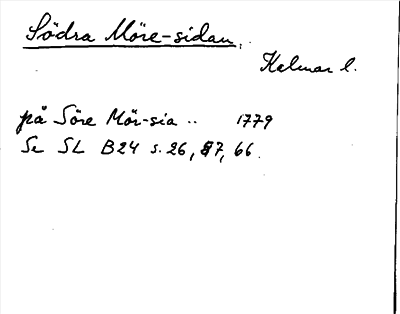 Södra Möre-sidan.
Kalmar l.
på Söre Mör-sia .. 1779
Se SL B24 s. 26, 87, 66.